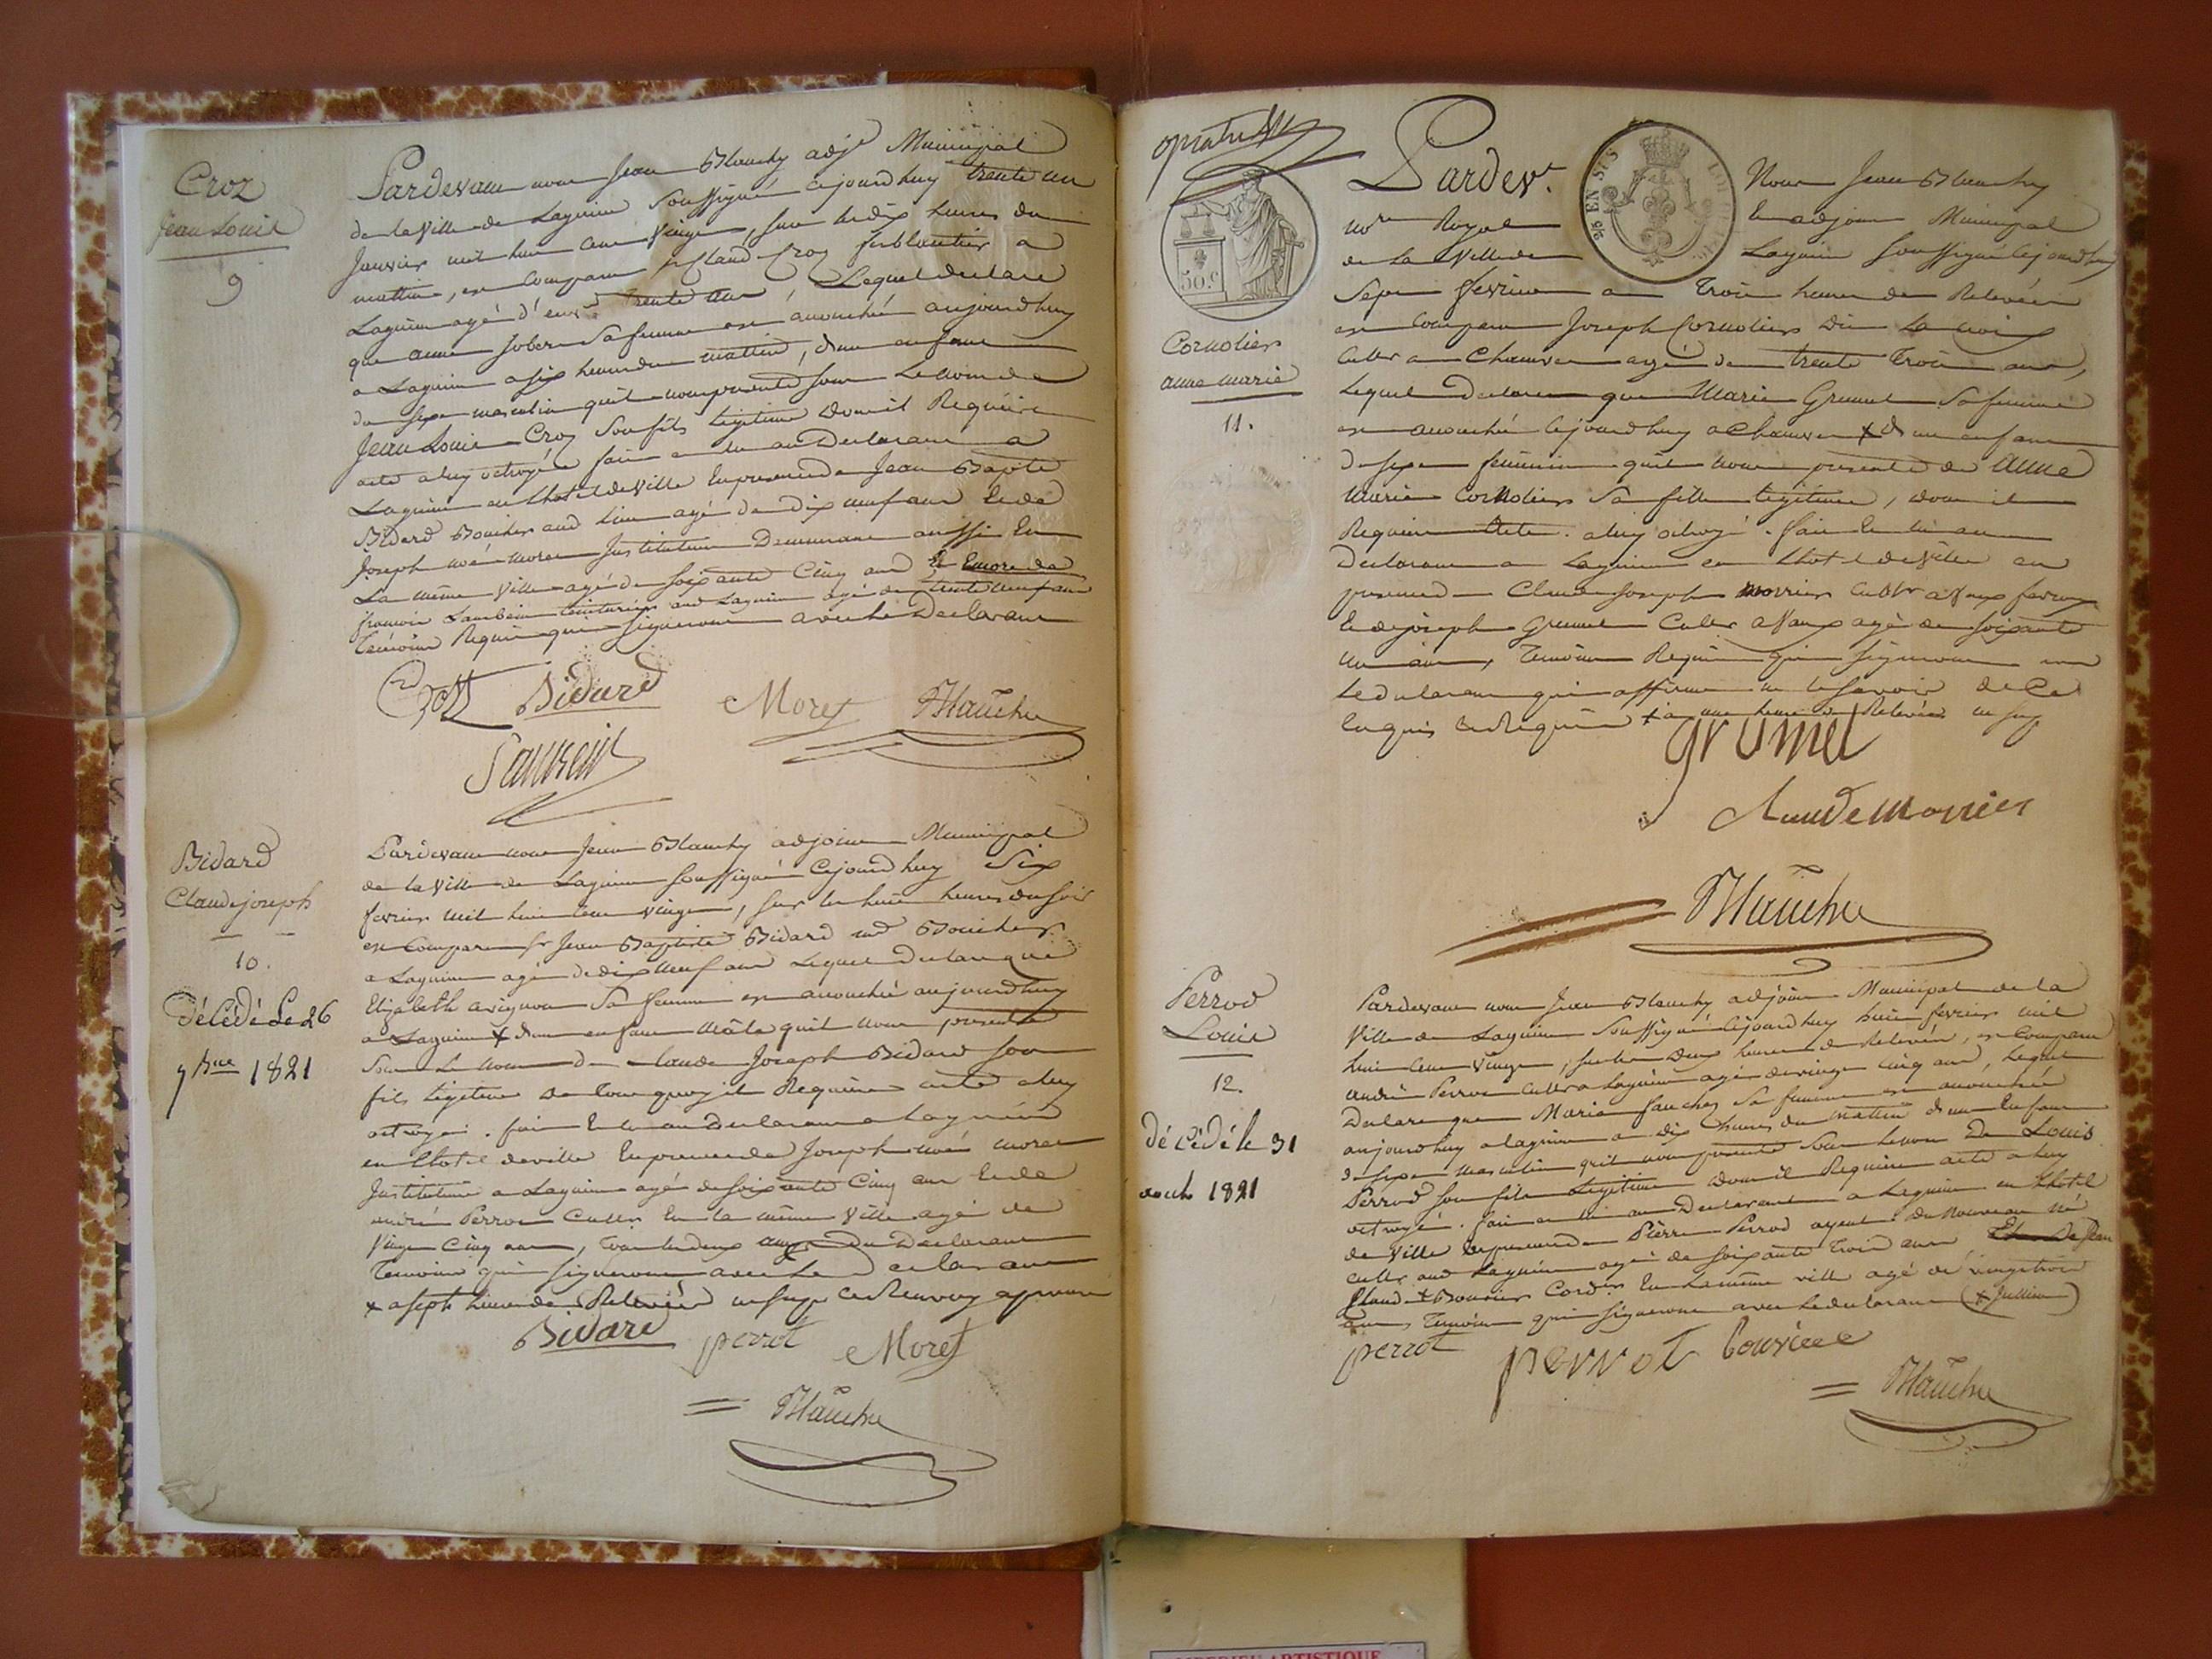 Croz
Jean Louis
9
Pardevant nous Jean Blanchy adjt Municipal
de la Ville de Lagnieu Soussigné Cejourdhuy trente un
Janvier mil huit cent Vingt, sur les dix heures du
mattin, est Comparu Sr Claude Croz ferblantier a
Lagnieu agé d'envn trente ans, Lequel declare
que anne Jobert Sa femme est accouchée aujourdhuy
a Lagnieu a six heures du mattin, d'un enfant
du sexe masculin quil nous presente sous le nom de
Jean Louis Croz Son fils legitime dont il Requiere
acte a luy octroyé fait et lu au Declarant a
Lagnieu en Lhotel de Ville En presence de Jean Bapte
Bidard Boucher aud lieu agé de dix neuf ans et de
Joseph moret Instituteur Demeurant aussi En
La même Ville agé de soixante Cinq ans et Encore de
françois teinturier aud Lagnieu agé de trente neuf ans
Temoins Requis qui signeront avec le Declarant
Croz Bidard Moret Blanchy
Bidard
Claude joseph
10.
décédé Le 26
7bre 1821
Pardevant nous Jean Blanchy adjoint Municipal
de la Ville de Lagnieu soussigné Cejourdhuy Six
fevrier mil huit cent vingt, sur les huit heures du soir
est Comparu Sr Jean Baptiste Bidard md Boucher
a Lagnieu agé de dix neuf ans Lequel Declare que
Elizabeth avignon Sa femme est accouchée aujourdhuy
a Lagnieu + d'un enfant mâle quil nous presente
Sous Le nom de Claude Joseph Bidard son
fils legitime de tout quoy il Requiere acte a luy
octroyé. fait Et lu au Declarant a Lagnieu
en Lhotel de ville En presence de Joseph moret
Instituteur a Lagnieu agé de soixante Cinq ans Et de
andré Perrod Cultr En la même Ville agé de
Vingt Cinq ans, tous les deux du Declarant
Temoins qui signeront avec Le Declarant
+ a sept heures de Relevée Ce Renvoy approuvé
Bidard perrot Moret
= Blanchy
Pardevt. Nous Jean Blanchy
nore Royal et adjoint Municipal
de La Ville de Lagnieu soussigné Cejourdhuy
50.c
Cornolier
anne marie
11.
Sept fevrier a Trois heures de Relevée
est Comparu Joseph Cornolier Dit La croix
Cultr a Chanves agé de trente Trois ans,
Lequel Declare que Marie Grumel Sa femme
est accouchée Cejourdhuy a Chanves + d'un enfant
du sexe féminin quil nous presente de Anne
Marie Cornolier Sa fille legitime, dont il
Requiere Acte. a luy octroyé. fait Et lu au
Declarant a Lagnieu en Lhotel de Ville en
presence de Claude Joseph morrier Cultr a Vaux fevroux
Et de joseph Grumel Cultr a Vaux agé de soixante
un ans, Temoins Requis qui signeront non
Le declarant qui affirme ne le savoir de Ce
Enquis et Requis + a une heure de Relevée
grumel
Claude morrier
Blanchy
Perrod
Louis
12.
décédé le 31
aouts 1821
Pardevant nous Jean Blanchy adjoint Municipal de la
Ville de Lagnieu Soussigné Cejourdhuy huit fevrier mil
huit Cent Vingt, sur les deux heures de Relevée, est Comparu
andré Perrod Cultr a Lagnieu agé de vingt Cinq ans, Lequel
Declare que Marie fauchez Sa femme est accouchée
aujourdhuy a lagnieu a dix heures du mattin d'un Enfant
du sexe masculin quil nous presente Sous le nom De Louis
Perrod son fils Legitime dont il Requiere acte a luy
octroyé. fait et lu au Declarant a Lagnieu en Lhotel
de Ville En presence de Pierre Perrod ayeul du Nouveau né
Cultr aud Lagnieu agé de soixante trois ans Et de Jean
Claude + Bouvier Cordr En La même ville agé de vingt trois
ans, Temoins qui signeront avec Le declarant (+ Jullien)
perrot perrot bouvier
= Blanchy